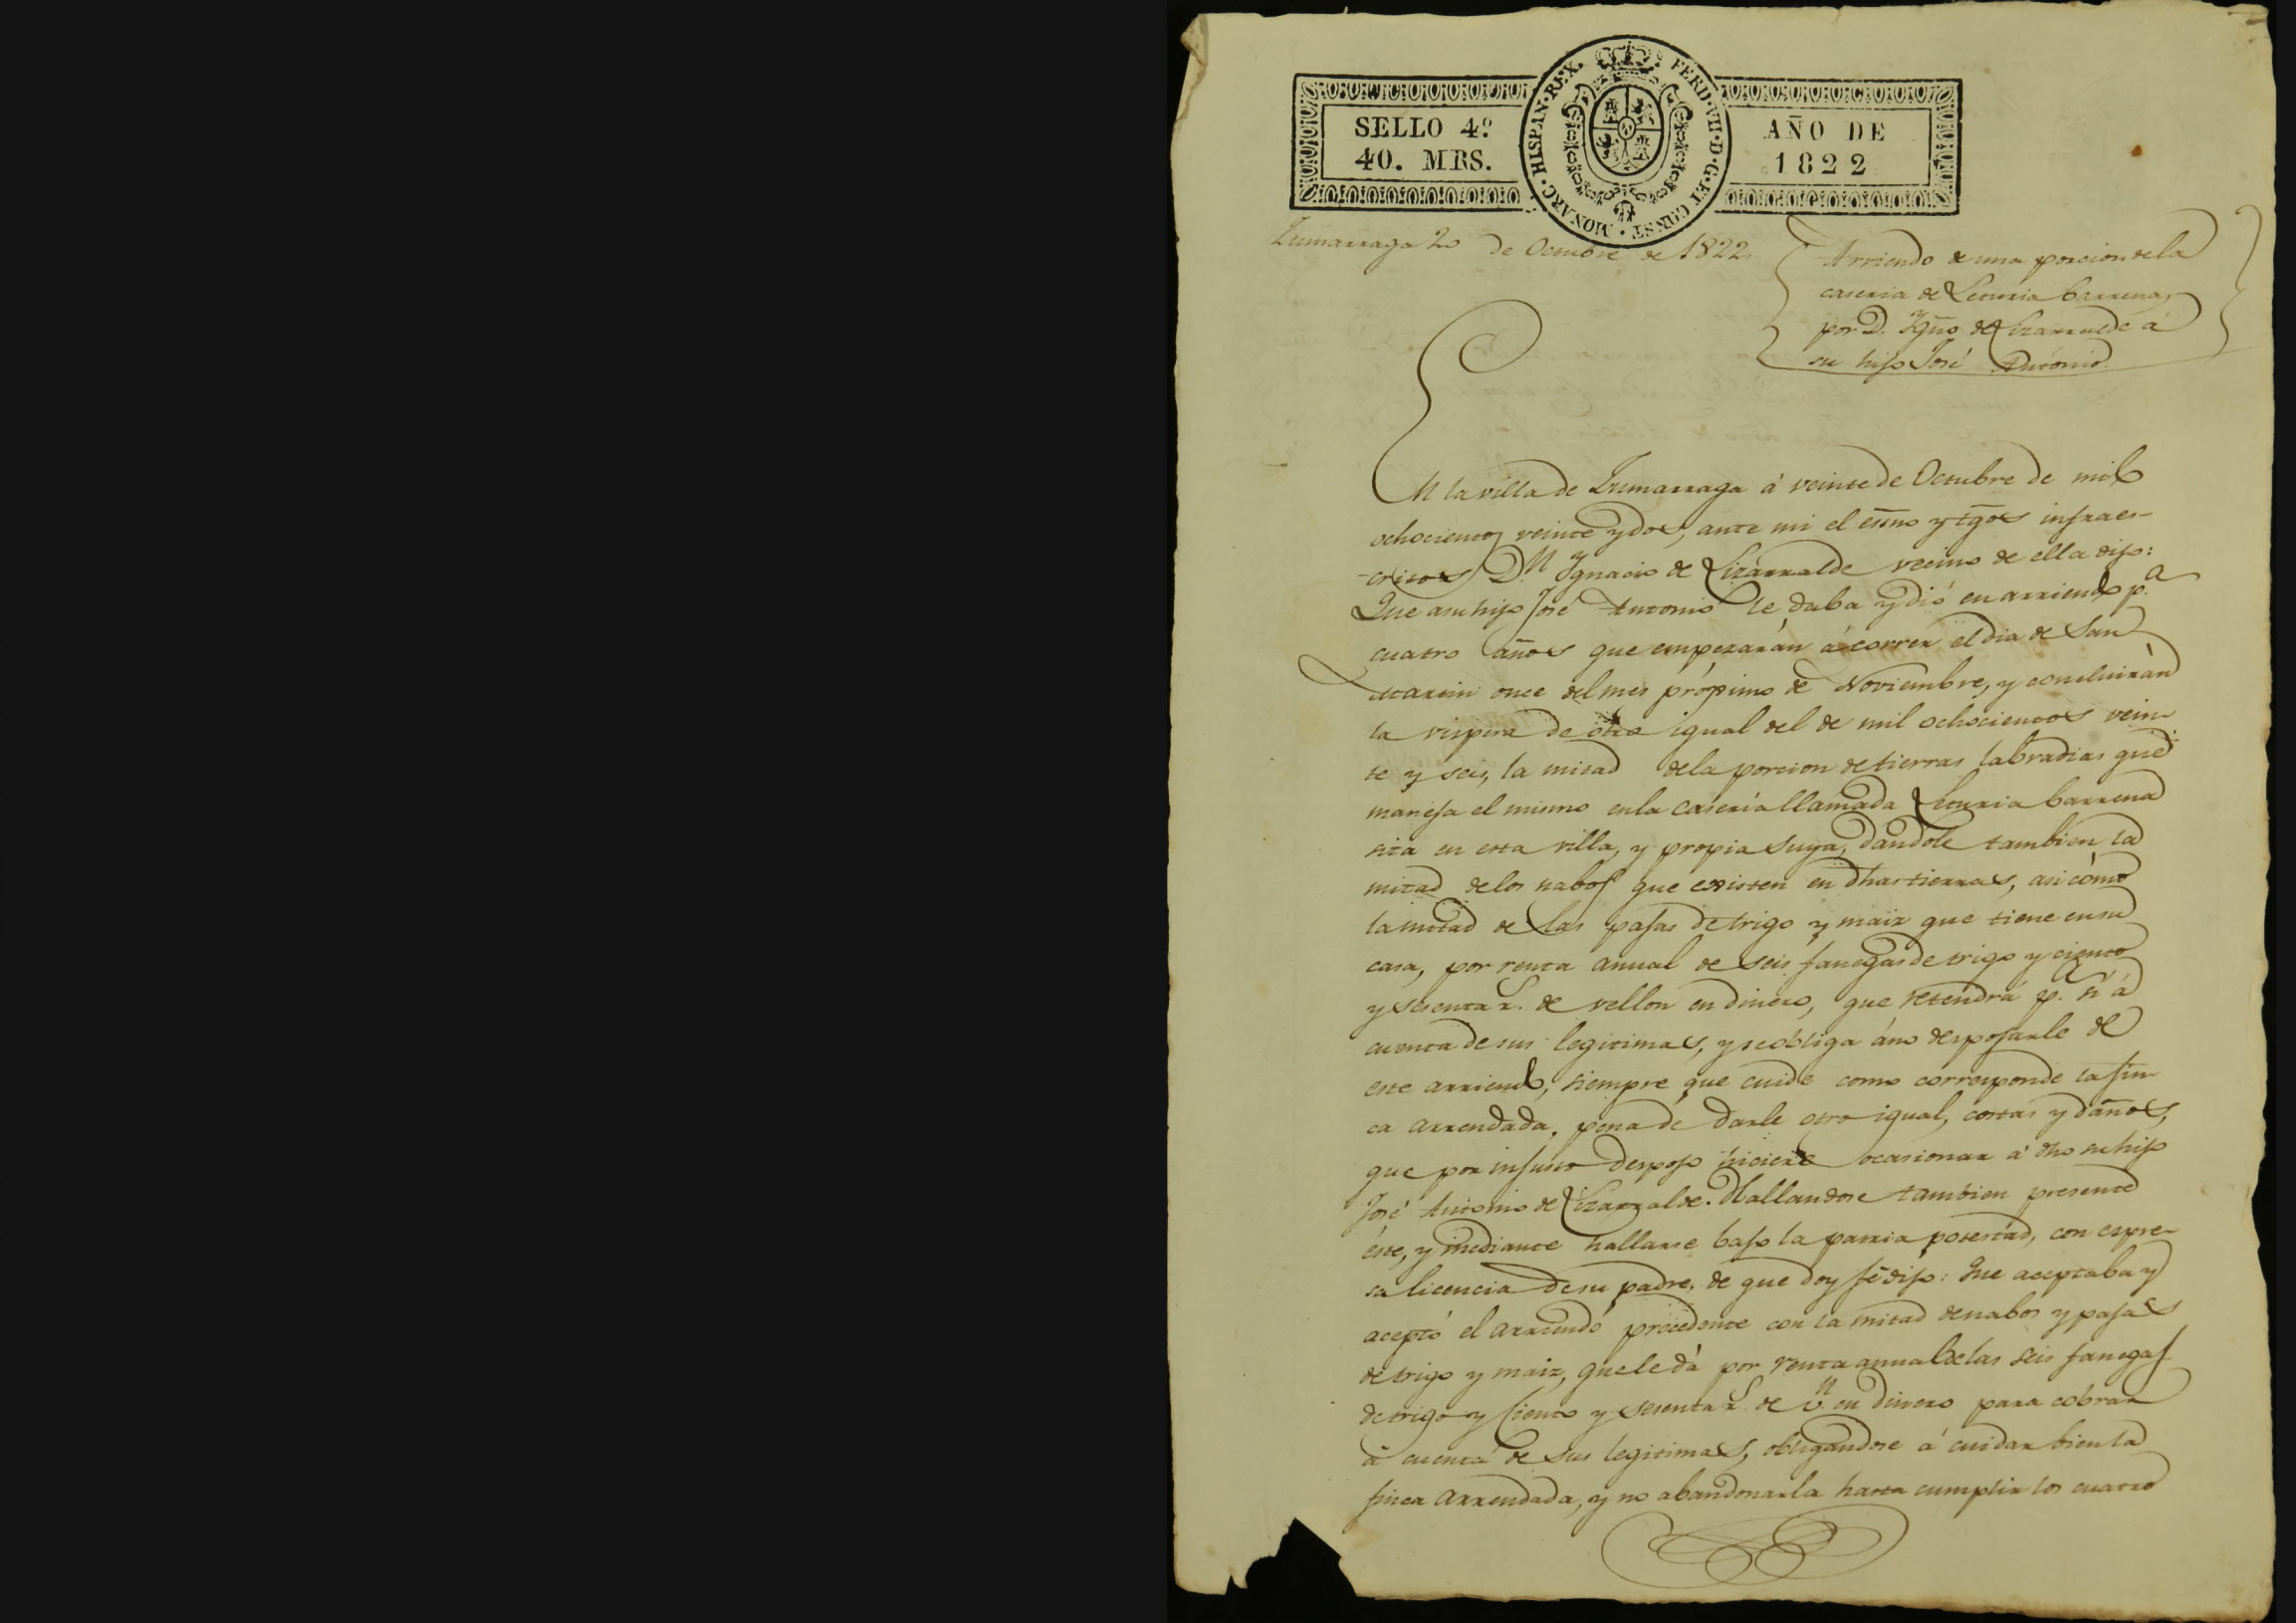 SELLO 4º
40. MRS.
HISPAN·REX. FERD·VII·D·G·ET CONST·MONARC·
AÑO DE
1822
Zumarraga 20 de Octubre de 1822.
Arriendo de una porcion de la
caseria de Lecuria barrena,
por D. Ygno de Lizarralde á
su hijo José Antonio
En la villa de Zumarraga á veinte de Octubre de mil
ochocientos veinte y dos, ante mi el essno y tgos infraes-
-critos Dn Ygnacio de Lizarralde vecino de ella dijo:
Que a su hijo José Antonio le daba y dió en arriendo pa
cuatro años que empezarán á correr el dia de San
Martin once del mes próximo de Noviembre, y concluirán
la vispera de otro igual del de mil ochocientos vein-
te y seis, la mitad de la porcion de tierras labradias que
maneja el mismo en la caseria llamada Lecuria barrena
sita en esta villa, y propia suya, dandole tambien la
mitad de los nabos que existen en dhas tierras, asi como
la mitad de las pajas de trigo y maiz que tiene en su
casa, por renta anual de seis fanegas de trigo y ciento
y sesenta rs. de vellon en dinero, que retendrá pa. si á
cuenta de sus legitimas, y se obliga á no despojarle de
este arriendo, siempre que cuide como corresponde la fin-
ca arrendada, pena de darle otro igual, costas y daños,
que por injusto despojo hiciere ocasionar á dho su hijo
José Antonio de Lizarralde. Hallandose tambien presente
éste, y mediante hallarse bajo la patria potestad, con espre-
sa licencia de su padre, de que doy fé dijo: Que aceptaba y
aceptó el arriendo precedente con la mitad de nabos y pajas
de trigo y maiz, que le dá por renta anual de las seis fanegas
de trigo y ciento y sesenta rs. de vn. en dinero para cobrar
á cuenta de sus legitimas, obligandose á cuidar bien la
finca arrendada, y no abandonarla hasta cumplir los cuatro